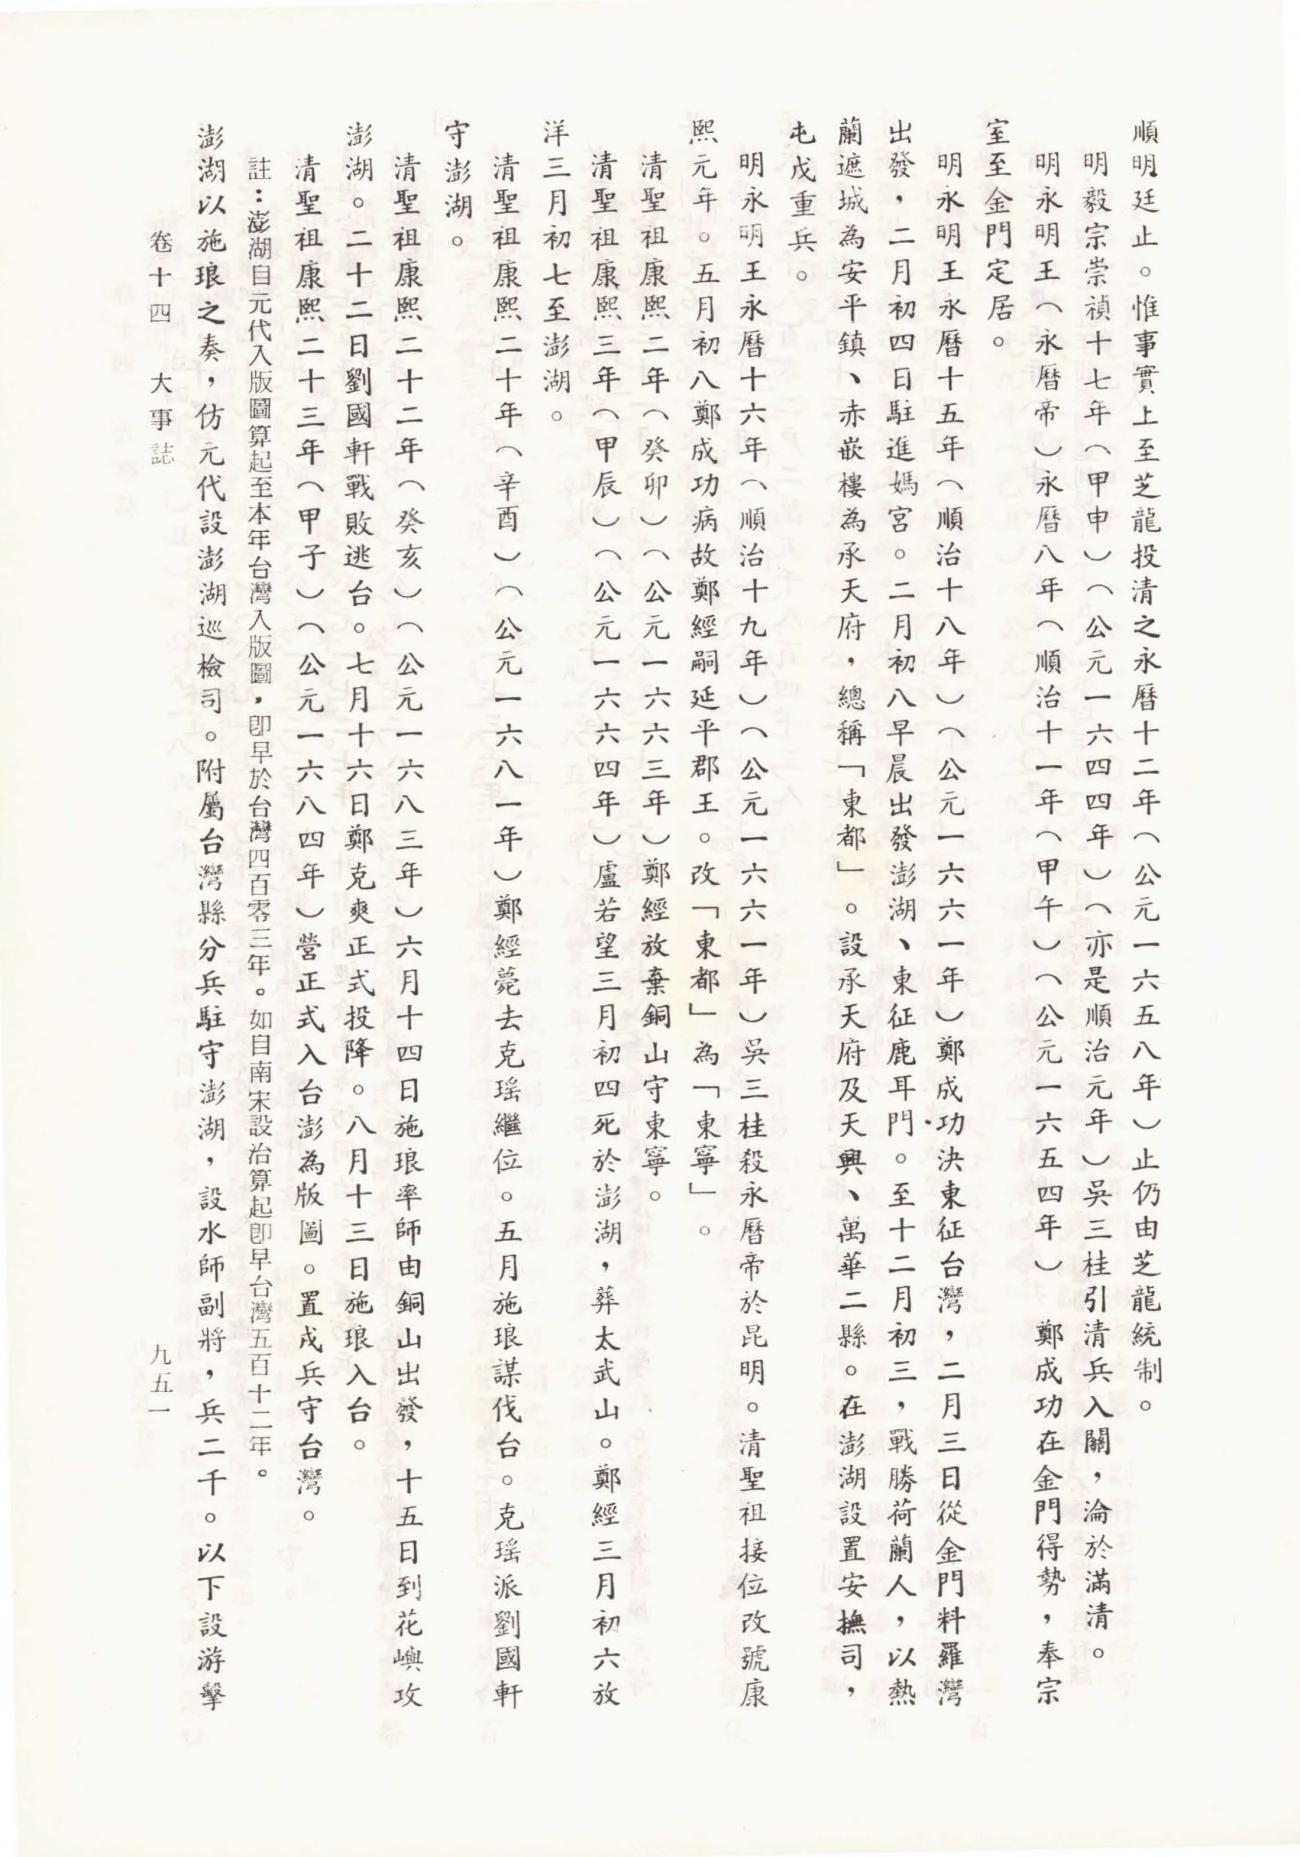 順明廷止。惟事實上至芝龍投清之永曆十二年(公元一六五八年)止仍由芝龍統制。
明毅宗崇禎十七年(甲申)(公元一六四四年)(亦是順治元年)吳三桂引清兵入關,淪於滿清。
明永明王(永曆帝)永曆八年(順治十一年(甲午)(公元一六五四年) 鄭成功在金門得勢,奉宗
室至金門定居。
明永明王永曆十五年(順治十八年)(公元一六六一年)鄭成功決東征台灣,二月三日從金門料羅灣
出發,二月初四日駐進媽宮。二月初八早晨出發澎湖、東征鹿耳門。至十二月初三,戰勝荷蘭人,以熱
蘭遮城為安平鎮、赤嵌樓為承天府,總稱「東都」。設承天府及天興、萬華二縣。在澎湖設置安撫司,
屯戍重兵。
明永明王永曆十六年(順治十九年)(公元一六六一年)吳三桂殺永曆帝於昆明。清聖祖接位改號康
熙元年。五月初八鄭成功病故鄭經嗣延平郡王。改「東都」為「東寧」。
清聖祖康熙二年(癸卯)(公元一六六三年)鄭經放棄銅山守東寧。
清聖祖康熙三年(甲辰)(公元一六六四年)盧若望三月初四死於澎湖,葬太武山。鄭經三月初六放
洋三月初七至澎湖。
清聖祖康熙二十年(辛酉)(公元一六八一年)鄭經薨去克瑤繼位。五月施琅謀伐台。克瑤派劉國軒
守澎湖。
清聖祖康熙二十二年(癸亥)(公元一六八三年)六月十四日施琅率師由銅山出發,十五日到花嶼攻
澎湖。二十二日劉國軒戰敗逃台。七月十六日鄭克爽正式投降。八月十三日施琅入台。
清聖祖康熙二十三年(甲子)(公元一六八四年)營正式入台澎為版圖。置戍兵守台灣。
註:澎湖自元代入版圖算起至本年台灣入版圖,卽早於台灣四百零三年。如自南宋設治算起卽早台灣五百十二年。
澎湖以施琅之奏,仿元代設澎湖巡檢司。附屬台灣縣分兵駐守澎湖,設水師副將,兵二千。以下設游擊
卷十四 大事誌 九五一